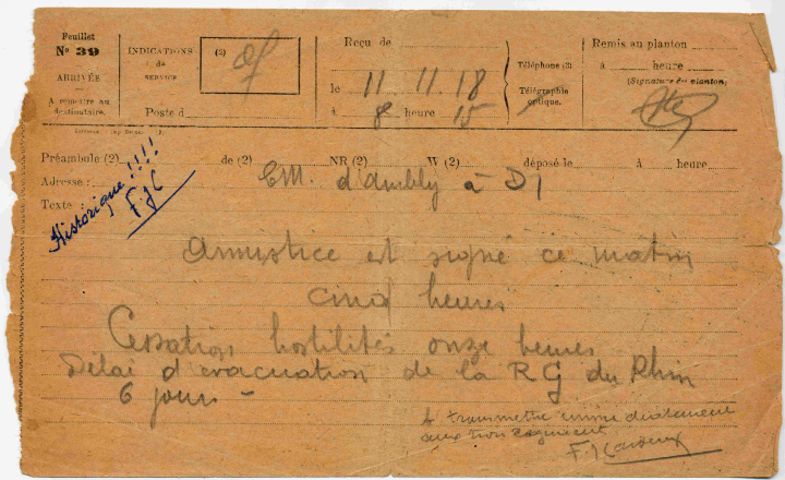 Feuillet
Nº 39
ARRIVÉE
A remettre au
destinataire.
INDICATIONS
de
SERVICE
(2)
Poste d
Reçu de
le 11 11 18
à 8 heure 15
Téléphone (3)
Télégraphie
optique.
Remis au planton
à heure
(Signature du planton)
Préambule (2) de (2) NR (2) W (2) déposé le à heure
Adresse : CM. d'Ambly à DI
Texte :
Historique !!!!
F.JC
Armistice est signé ce matin
cinq heures
Cessation hostilités onze heures
Délai d'évacuation de la RG du Rhin
6 jours -
à transmettre immédiatement
aux trois régiments